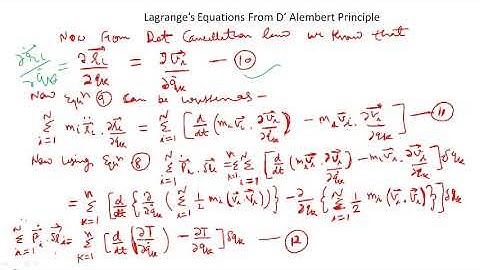 Lagrange's Equations From D' Alembert Principle
Now From Dot Cancellation law we know that
∂ṙᵢ/∂q̇ₖ = ∂r⃗ᵢ/∂qₖ = ∂v⃗ᵢ/∂q̇ₖ — (10)
Now Equⁿ (9) can be written as –
∑ᵢ₌₁ᴺ mᵢ r̈ᵢ · ∂r⃗ᵢ/∂qₖ = ∑ᵢ₌₁ᴺ [d/dt (mᵢ v⃗ᵢ · ∂v⃗ᵢ/∂q̇ₖ) − mᵢ v⃗ᵢ · ∂v⃗ᵢ/∂qₖ] — (11)
Now using Equⁿ (8) ∑ᵢ₌₁ᴺ ṗᵢ · δr⃗ᵢ = ∑ₖ₌₁ⁿ ∑ᵢ₌₁ᴺ [d/dt (mᵢ v⃗ᵢ · ∂v⃗ᵢ/∂q̇ₖ) − mᵢ v⃗ᵢ · ∂v⃗ᵢ/∂qₖ] δqₖ
= ∑ₖ₌₁ⁿ [d/dt {∂/∂q̇ₖ (∑ᵢ₌₁ᴺ ½ mᵢ (v⃗ᵢ · v⃗ᵢ))} − ∂/∂qₖ {∑ᵢ₌₁ᴺ ½ mᵢ (v⃗ᵢ · v⃗ᵢ)}] δqₖ
∑ᵢ₌₁ᴺ ṗᵢ · δr⃗ᵢ = ∑ₖ₌₁ⁿ [d/dt (∂T/∂q̇ₖ) − ∂T/∂qₖ] δqₖ — (12)